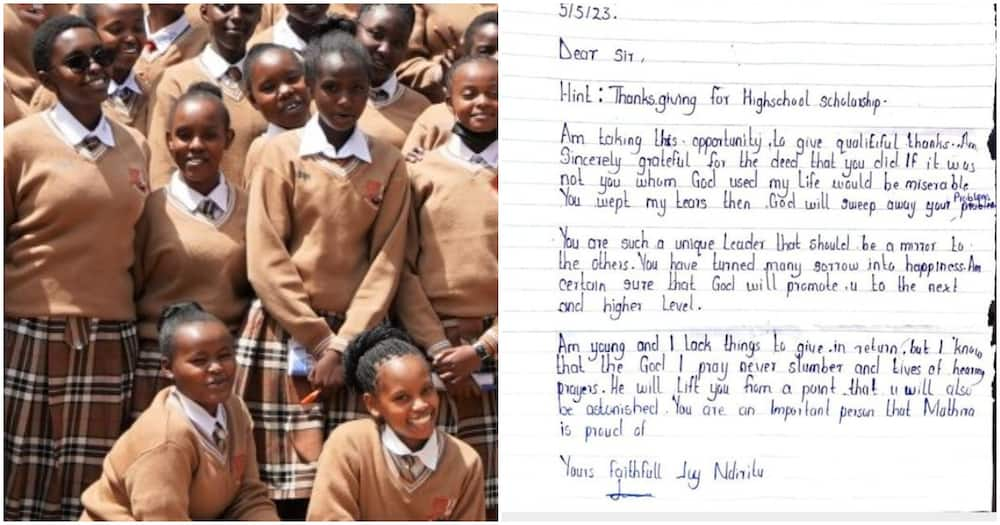 5/5/23.
Dear Sir,
Hint: Thanksgiving for Highschool scholarship.
Am taking this opportunity to give qualitiful thanks. Am
Sincerely grateful for the deed that you did If it was
not you whom God used my Life would be miserable
You wept my tears then God will sweep away your problems
You are such a unique Leader that should be a mirror to
the others. You have turned many sorrow into happiness. Am
certain sure that God will promote u to the next
and higher Level.
Am young and I Lack things to give in return, but I know
that the God I pray never slumber and tives of hearing
prayers. He will Lift you from a point that u will also
be astonished. You are an Important person that Mathra
is proud of
Yours faithfull Ivy Ndiritu